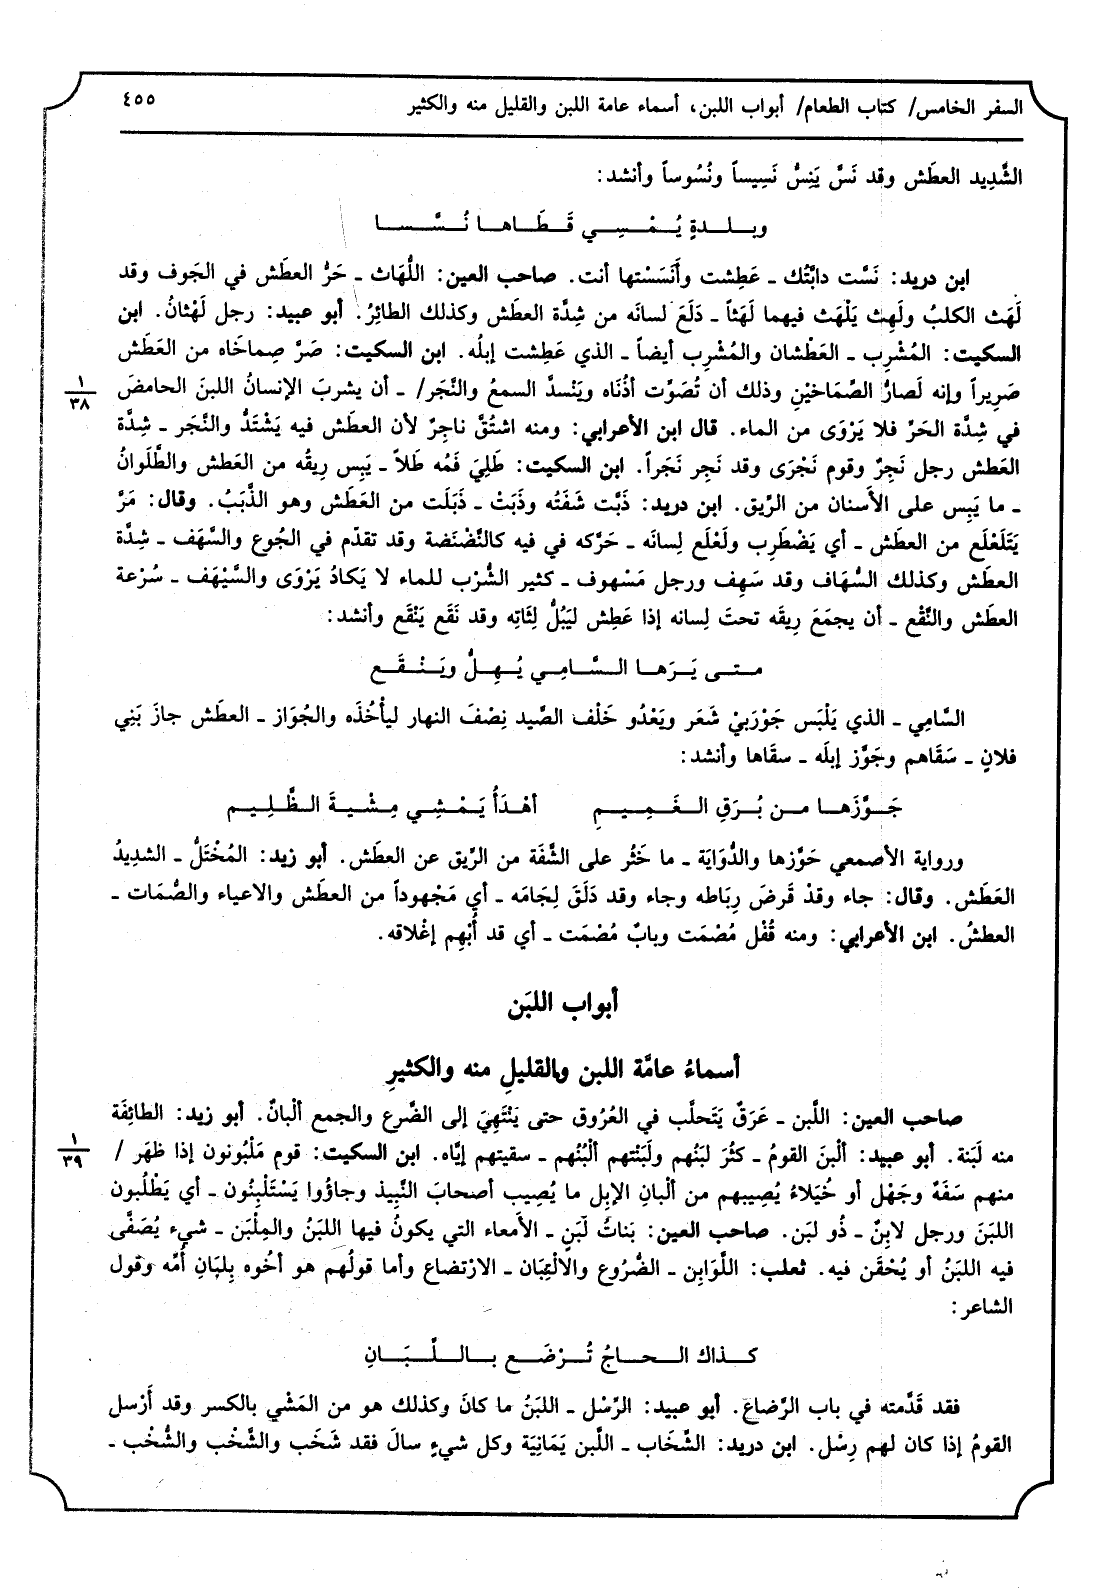 السفر الخامس/ كتاب الطعام/ أبواب اللبن، أسماء عامة اللبن والقليل منه والكثير ٤٥٥
الشَّدِيد العطَش وقد نَسَّ يَنِسُّ نَسِيساً ونُسُوساً وأنشد:
وبـلـدةٍ يُـمْـسِـي قَـطَاهـا نُـسَّـسـا
ابن دريد: نَسَّت دابَّتُك ـ عَطِشت وأَنسَسْتها أنت. صاحب العين: اللُّهاث ـ حَرُّ العطَش في الجَوف وقد
لَهَث الكلبُ ولَهِث يَلْهَث فيهما لَهَثاً ـ دَلَعَ لسانَه من شِدَّة العطَش وكذلك الطائِرُ. أبو عبيد: رجل لَهْثانُ. ابن
السكيت: المُشْرِب ـ العَطْشان والمُشْرِب أيضاً ـ الذي عَطِشت إبلُه. ابن السكيت: صَرَّ صِماخَاه من العَطَش
١
٣٨
صَرِيراً وإنه لَصارُّ الصِّمَاخَيْنِ وذلك أن تُصَوِّت أذُنَاه ويَنْسدَّ السمعُ والنَّجَر/ ـ أن يشربَ الإنسانُ اللبنَ الحامضَ
في شِدَّة الحَرِّ فلا يَرْوَى من الماء. قال ابن الأعرابي: ومنه اشتُقَّ ناجِرٌ لأن العطَش فيه يَشْتَدُّ والنَّجَر ـ شِدَّة
العَطش رجل نَجِرٌ وقوم نَجْرَى وقد نَجِر نَجَراً. ابن السكيت: طَلِيَ فَمُه طَلاً ـ يَبِس رِيقُه من العَطش والطَّلَوانُ
ـ ما يَبِس على الأَسنان من الرِّيق. ابن دريد: ذَبَّت شَفَتُه وذَبَتْ ـ ذَبَلَت من العَطَش وهو الذَّبَبُ. وقال: مَرَّ
يَتَلَعْلَع من العطَش ـ أي يَضْطَرِب ولَعْلَع لِسانَه ـ حَرَّكه في فيه كالنَّضْنَضة وقد تقدّم في الجُوع والسَّهَف ـ شِدَّة
العطَش وكذلك السُّهَاف وقد سَهِف ورجل مَسْهوف ـ كثير الشُّرْب للماء لا يَكادُ يَرْوَى والسَّيْهَف ـ سُرْعة
العطَش والنَّقْع ـ أن يجمَعَ رِيقَه تحتَ لِسانه إذا عَطِش ليَبُلَّ لِثَاتِه وقد نَقَع يَنْقَع وأنشد:
مـتـى يَـرَهـا الـسَّـامِـي يُـهِـلُّ ويَـنْـقَـع
السَّامِي ـ الذي يَلْبَس جَوْرَبيْ شَعَر ويَعْدُو خَلْف الصَّيد نِصْفَ النهار ليأْخُذَه والجُوَاز ـ العطَش جازَ بَنِي
فلانٍ ـ سَقَاهم وجَوَّز إبلَه ـ سقَاها وأنشد:
جَـوَّزَهـا مـن بُـرَقِ الـغَـمِـيـمِ أهْـدَأُ يَـمْـشِـي مِـشْـيـةَ الـظَّـلِـيـم
ورواية الأصمعي حَوَّزها والدُّوَايَة ـ ما خَثُر على الشَّفَة من الرِّيق عن العطَش. أبو زيد: المُخْتَلُّ ـ الشديدُ
العَطَش. وقال: جاء وقدْ قَرضَ رِبَاطه وجاء وقد دَلَقَ لِجَامَه ـ أي مَجْهوداً من العطَش والاعياء والصُّمَات ـ
العطشُ. ابن الأعرابي: ومنه قُفْل مُصْمَت وبابٌ مُصْمَت ـ أي قد أُبْهِم إغْلاقه.
أبواب اللبَن
أسماءُ عامَّة اللبن والقليلِ منه والكثيرِ
صاحب العين: اللَّبن ـ عَرَقٌ يَتَحلَّب في العُرُوق حتى يَنْتَهِيَ إلى الضَّرع والجمع ألْبانٌ. أبو زيد: الطائِفَة
١
٣٩
منه لَبَنة. أبو عبيد: ألْبنَ القومُ ـ كثُرَ لبَنُهم ولَبَنْتهم ألْبُنُهم ـ سقيتهم إيَّاه. ابن السكيت: قوم مَلْبُونون إذا ظهَر /
منهم سَفَهٌ وجَهْل أو خُيَلاءُ يُصِيبهم من ألْبانِ الإبِل ما يُصِيب أصحابَ النَّبِيذ وجاؤوا يَسْتَلْبِنُون ـ أي يَطْلُبون
اللبَنَ ورجل لابِنٌ ـ ذُو لبَن. صاحب العين: بَناتُ لَبَنٍ ـ الأَمعاء التي يكونُ فيها اللبَنُ والمِلْبَن ـ شيء يُصَفَّى
فيه اللبَنُ أو يُحْقَن فيه. ثعلب: اللَّوَابِن ـ الضُّرُوع والالْتِبَان ـ الارْتضاع وأما قولُهم هو أخُوه بِلبَانِ أُمِّه وقول
الشاعر:
كـذاك الـحـاجُ تُـرْضَـع بـالـلَّـبَـانِ
فقد قَدَّمته في باب الرَّضاع. أبو عبيد: الرِّسْل ـ اللبَنُ ما كانَ وكذلك هو من المَشْي بالكسر وقد أَرْسل
القومُ إذا كان لهم رِسْل. ابن دريد: الشِّخَاب ـ اللَّبن يَمَانِيَة وكل شيءٍ سالَ فقد شَخَب والشَّخْب والشُّخْب ـ